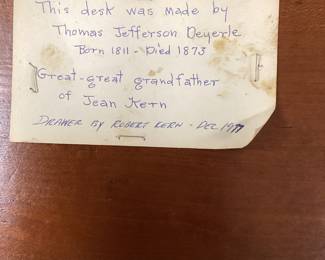 This desk was made by
Thomas Jefferson Deyerle
Born 1811 - Died 1873
Great-great grandfather
of Jean Kern
DRAWER BY ROBERT KERN - DEC 1977